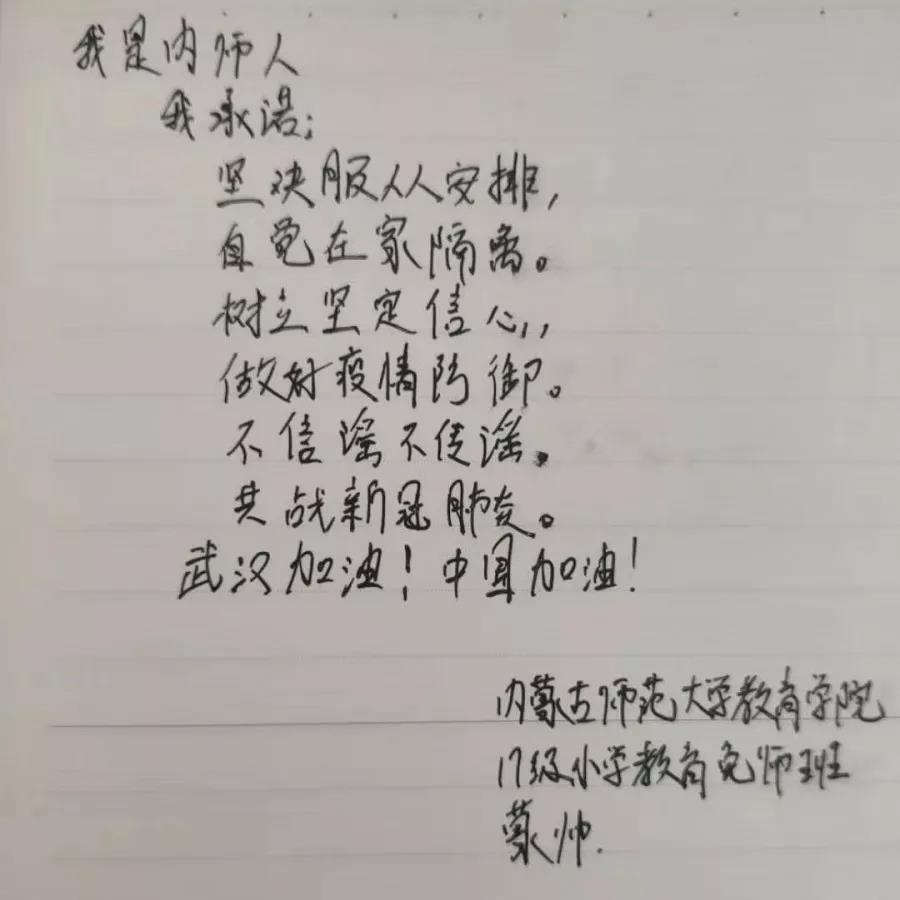 我是内师人
我承诺:
坚决服从人安排,
自觉在家隔离。
树立坚定信心,,
做好疫情防御。
不信谣不传谣。
共战新冠肺炎。
武汉加油!中国加油!
内蒙古师范大学教育学院
17级小学教育免师班
蒙帅.